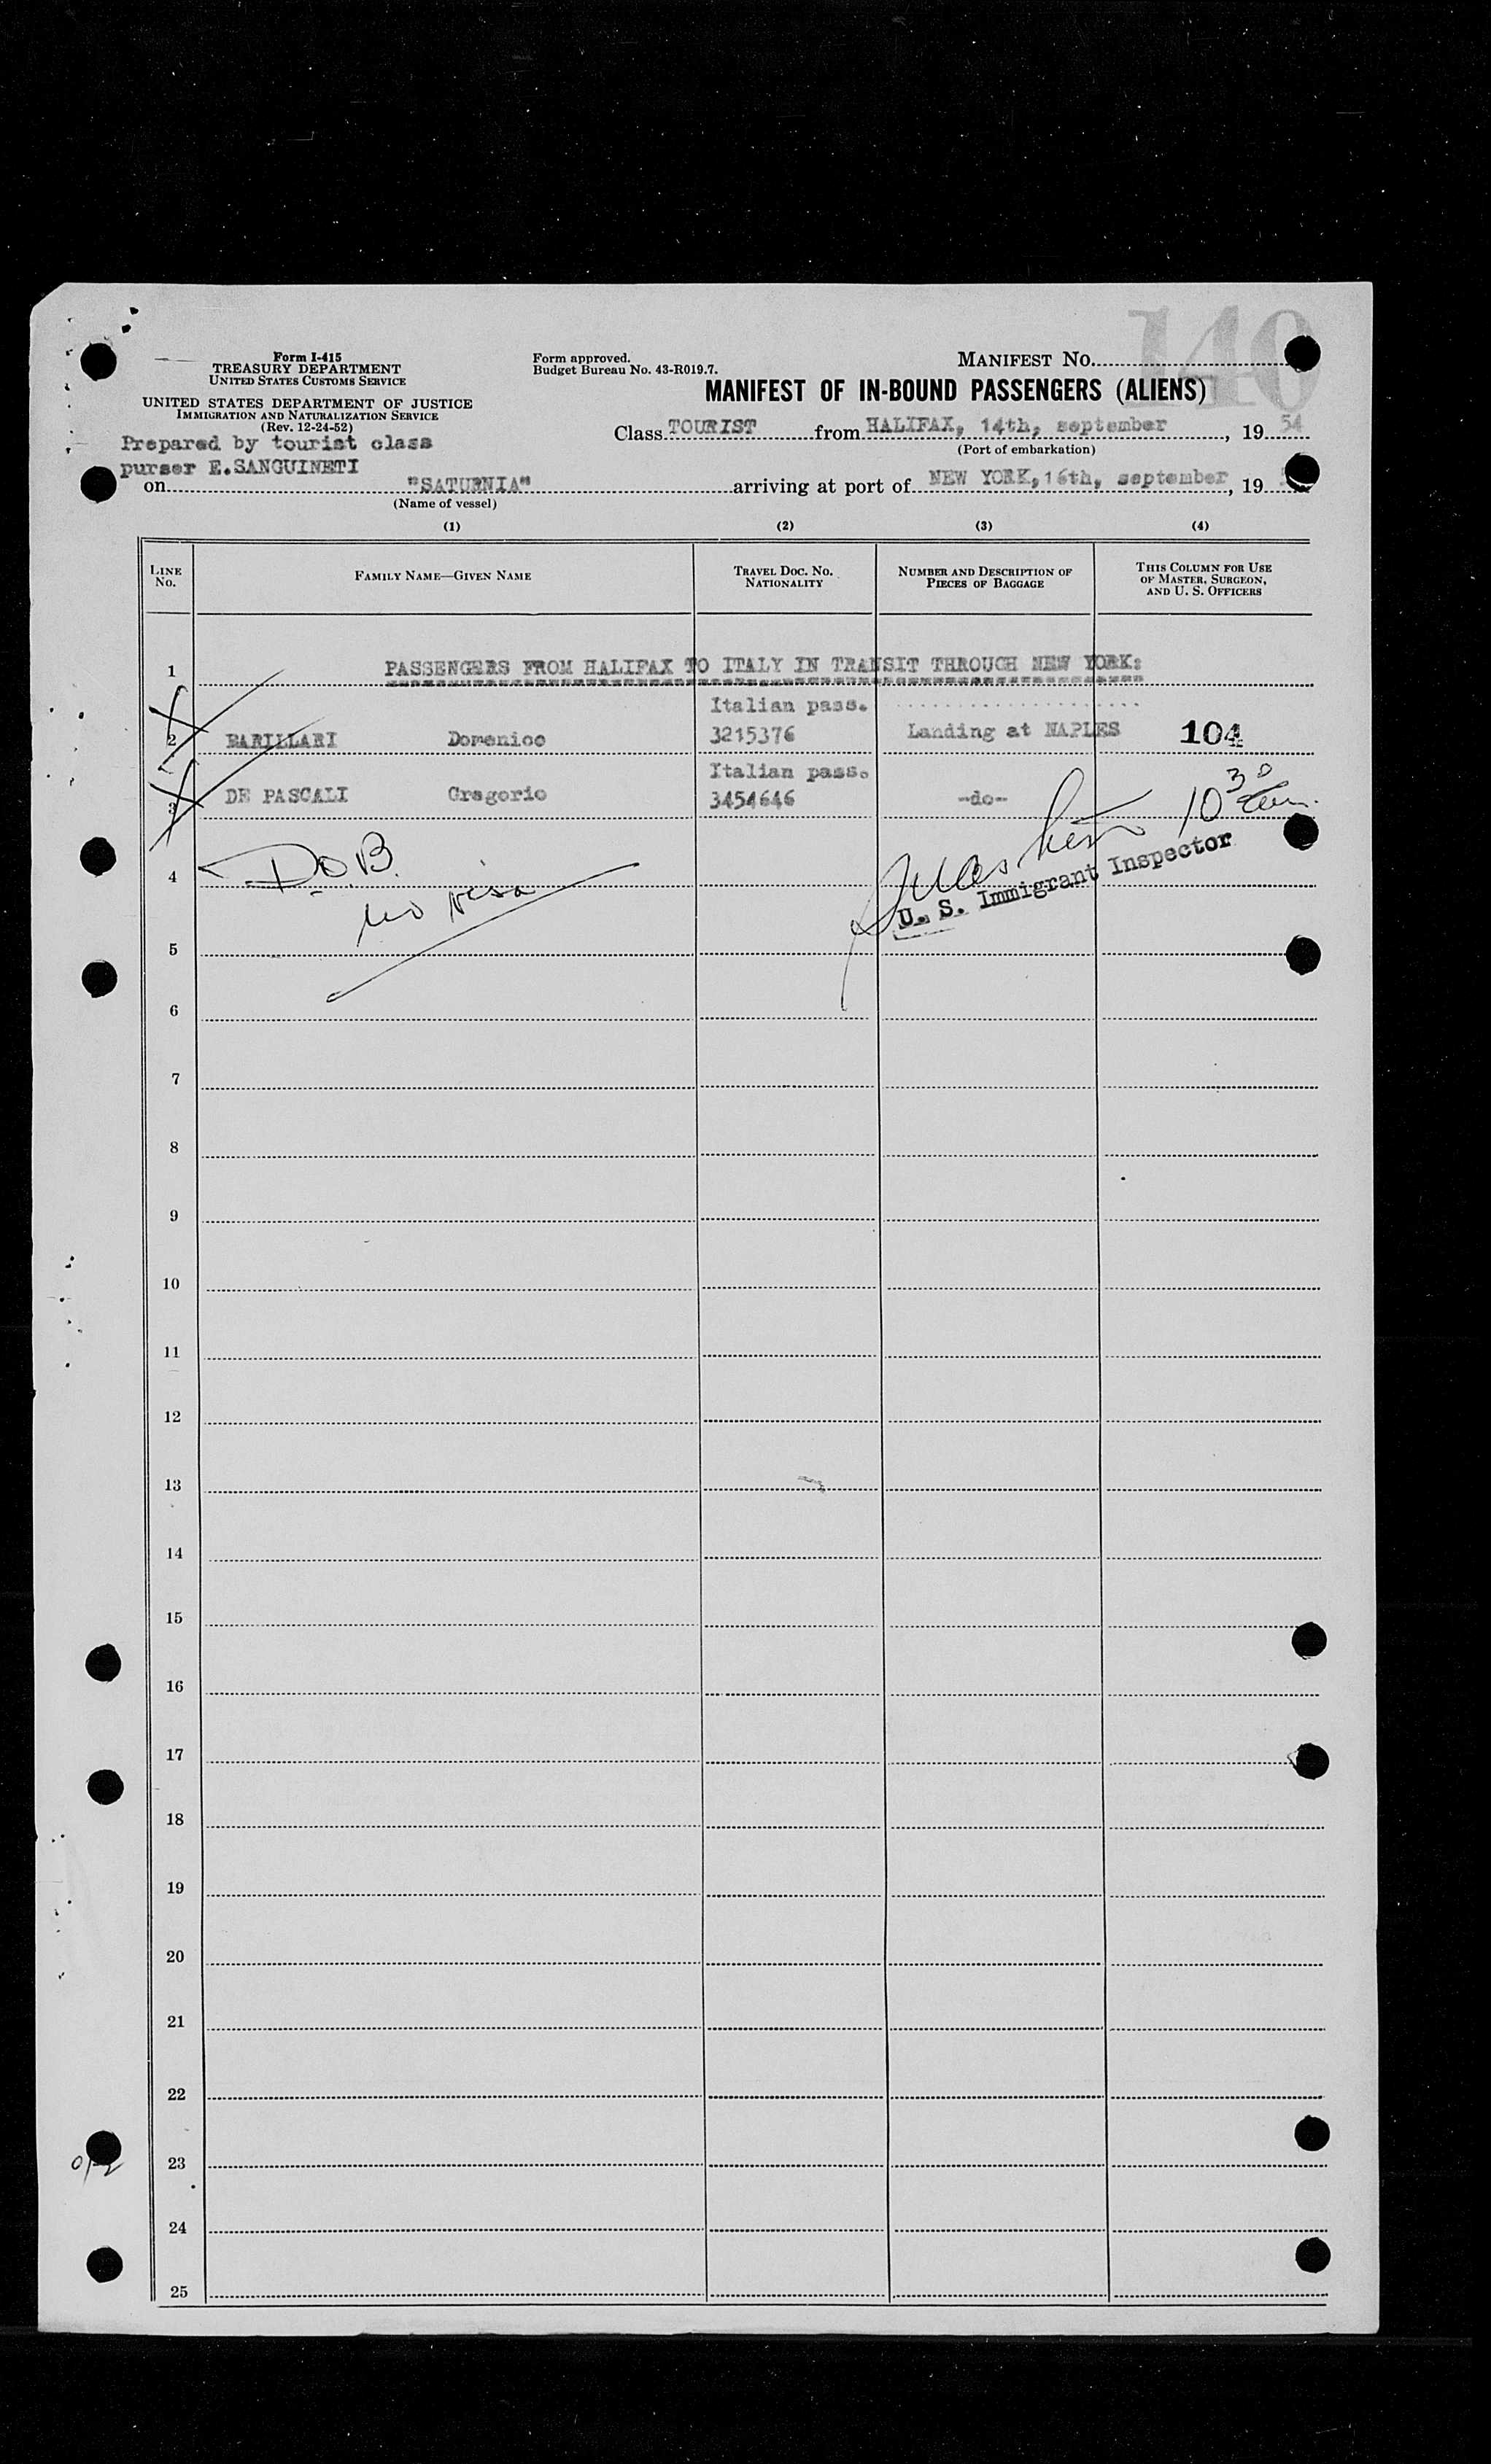 140
Form I-415
TREASURY DEPARTMENT
UNITED STATES CUSTOMS SERVICE
UNITED STATES DEPARTMENT OF JUSTICE
IMMIGRATION AND NATURALIZATION SERVICE
(Rev. 12-24-52)
Form approved.
Budget Bureau No. 43-R019.7.
MANIFEST NO.
MANIFEST OF IN-BOUND PASSENGERS (ALIENS)
Prepared by tourist class
purser E.SANGUINETI
Class TOURIST from HALIFAX, 14th, september, 19 54
(Port of embarkation)
on "SATURNIA" arriving at port of NEW YORK, 16th, september, 19
(Name of vessel)
(1) (2) (3) (4)
LINE NO. FAMILY NAME—GIVEN NAME TRAVEL DOC. NO. NATIONALITY NUMBER AND DESCRIPTION OF PIECES OF BAGGAGE THIS COLUMN FOR USE OF MASTER, SURGEON, AND U. S. OFFICERS
1 PASSENGERS FROM HALIFAX TO ITALY IN TRANSIT THROUGH NEW YORK:
Italian pass.
2 BARILLARI Domenico 3215376 Landing at NAPLES 104
Italian pass.
3 DE PASCALI Gregorio 3454646 -do- 10 30
4 D.O.B.
no visa
U. S. Immigrant Inspector
5
6
7
8
9
10
11
12
13
14
15
16
17
18
19
20
21
22
23
24
25